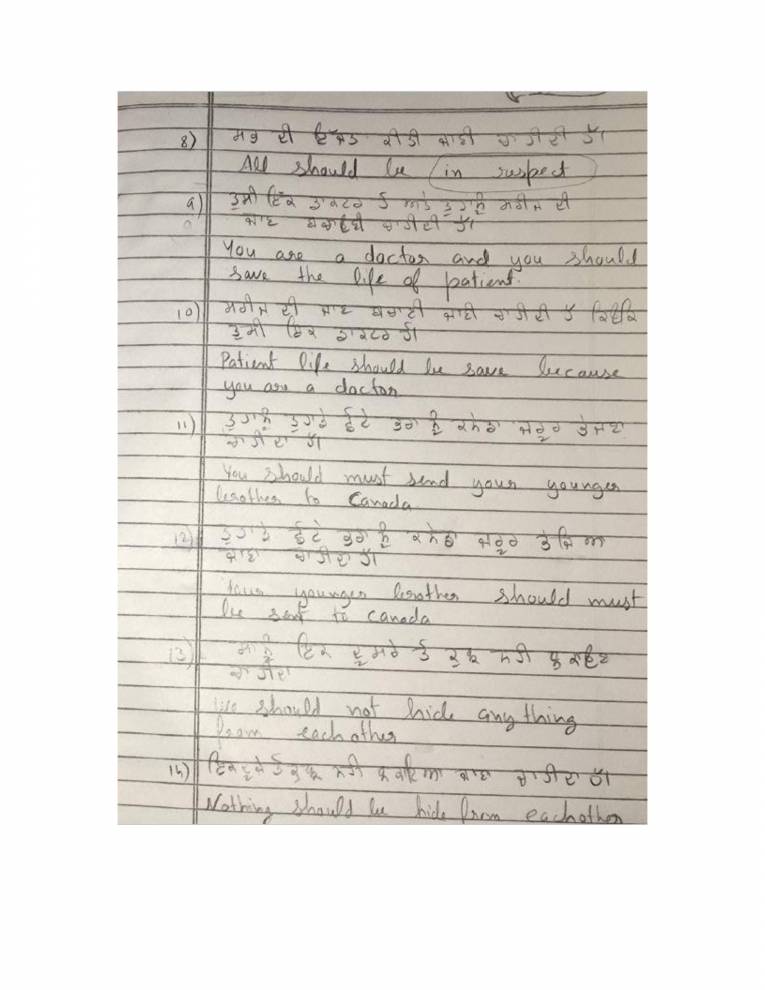 8) ਸਭ ਦੀ ਇੱਜਤ ਕੀਤੀ ਜਾਣੀ ਚਾਹੀਦੀ ਹੈ।
All should be in respect
9) ਤੁਸੀ ਇੱਕ ਡਾਕਟਰ ਹੋ ਅਤੇ ਤੁਹਾਨੂੰ ਮਰੀਜ ਦੀ
ਜਾਣ ਬਚਾਉਣੀ ਚਾਹੀਦੀ ਹੈ।
You are a doctor and you should
save the life of patient.
10) ਮਰੀਜ ਦੀ ਜਾਣ ਬਚਾਣੀ ਜਾਣੀ ਚਾਹੀਦੀ ਹੈ ਕਿਉਂਕਿ
ਤੁਸੀ ਇਕ ਡਾਕਟਰ ਹੋ।
Patient life should be save because
you are a doctor
11) ਤੁਹਾਨੂੰ ਤੁਹਾਡੇ ਛੋਟੇ ਭਰਾ ਨੂੰ ਕਨੇਡਾ ਜਰੂਰ ਭੇਜਣਾ
ਚਾਹੀਦਾ ਹੈ।
You should must send your younger
brother to Canada
12) ਤੁਹਾਡੇ ਛੋਟੇ ਭਰਾ ਨੂੰ ਕਨੇਡਾ ਜਰੂਰ ਭੇਜਿਆ
ਜਾਣਾ ਚਾਹੀਦਾ ਹੈ।
Your younger brother should must
be sent to canada
13) ਸਾਨੂੰ ਇਕ ਦੂਸਰੇ ਤੋਂ ਕੁਝ ਨਹੀ ਲੁਕਾਉਣਾ
ਚਾਹੀਦਾ
We should not hide anything
from eachother
14) ਇਕਦੂਜੇ ਤੋਂ ਕੁਝ ਨਹੀ ਲੁਕਾਇਆ ਜਾਣਾ ਚਾਹੀਦਾ ਹੈ।
Nothing should be hide from eachother